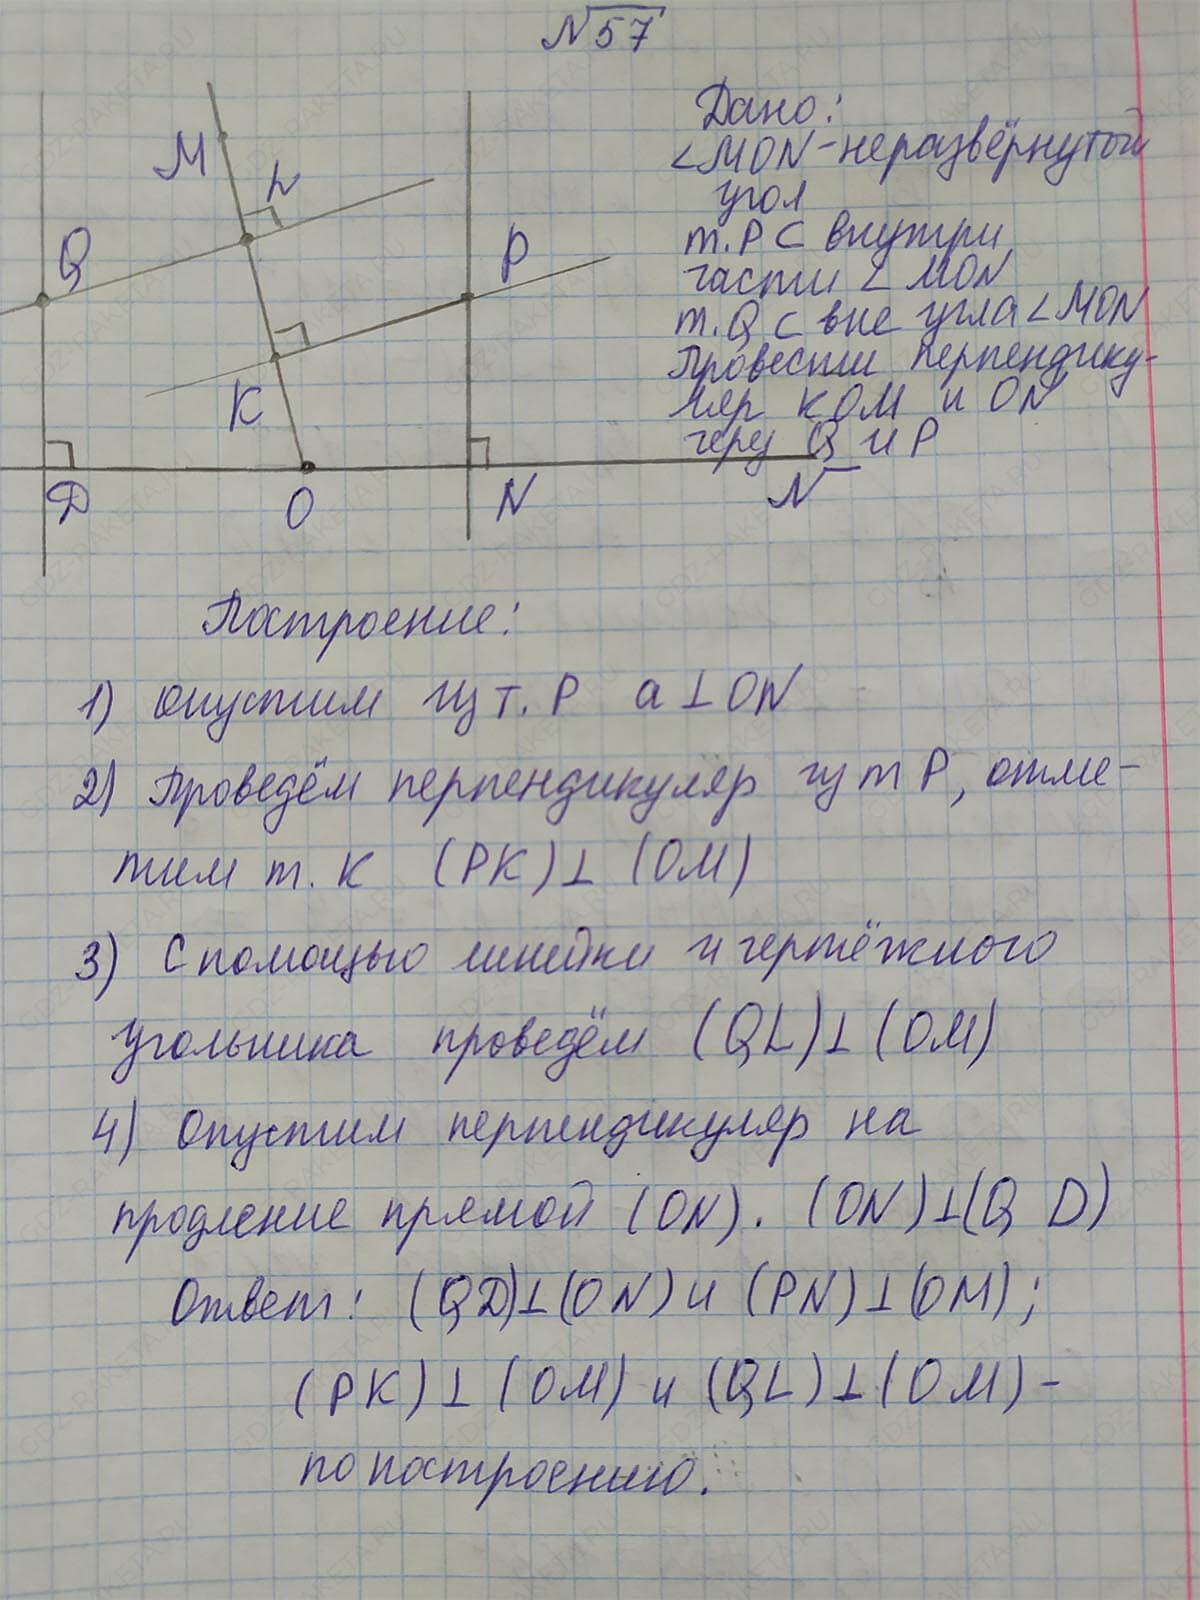 №57
Дано:
∠MON-неразвёрнутой
угол
т.P⊂ внутри
части ∠ MON
т.Q⊂ вне угла∠MON
Провести перпендику-
ляр к OM и ON
через Q и P
M
L
Q
P
K
Д
O
N
N
Построение:
1) опустим из т.P a⊥ON
2) Проведём перпендикуляр из т P, отме-
тим т. K (PK)⊥(OM)
3) С помощью линейки и чертёжного
угольника проведём (QL)⊥(OM)
4) Опустим перпендикуляр на
продление прямой (ON). (ON)⊥(Q D)
Ответ: (QД)⊥(ON) и (PN)⊥(OM);
(PK)⊥(OM) и (QL)⊥(OM)-
по построению.